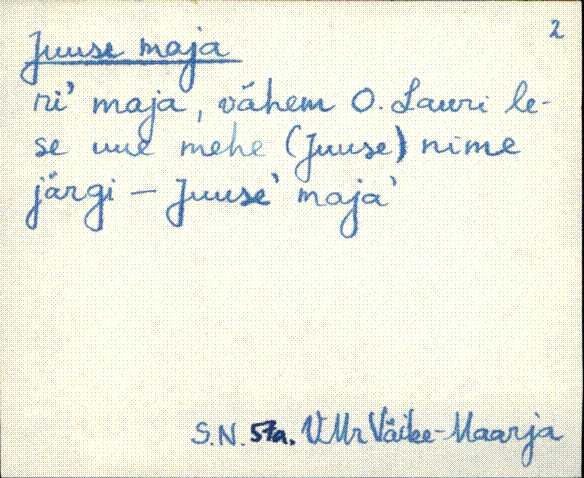 2
Juuse maja
ri' maja, vähem O. Lauri le-
se uue mehe (Juuse) nime
järgi – Juuse' maja'
S.N. 57a. VMr Väike-Maarja